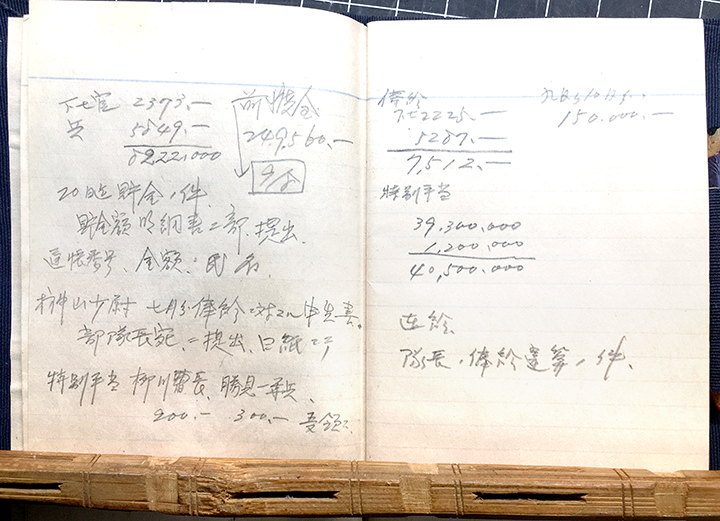 下士官 2373.—
兵 5849.—
8222.000
前渡金
249,560.—
20日迄貯金ノ件
貯金額明細書二部提出
通帳番号、金額、氏名
山少尉 七月分俸給ニ対スル申告書。
部隊長宛ニ提出、白紙ニテ
特別手当 柳川曹長、勝見一等兵、
200.— 300.— 受領
俸給
下士2225.—
5287.—
7,512.—
150.000.—
特別手当
39,300,000
1,200,000
40,500,000
隊長ノ俸給違算ノ件、